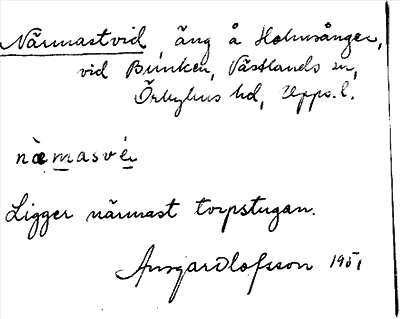 Närmastvid, äng å Holmsånger,
vid Bunken, Västlands sn,
Örbyhus hd, Upps. l.
næmasvé
Ligger närmast torpstugan.
Ansgar Olofsson 1951